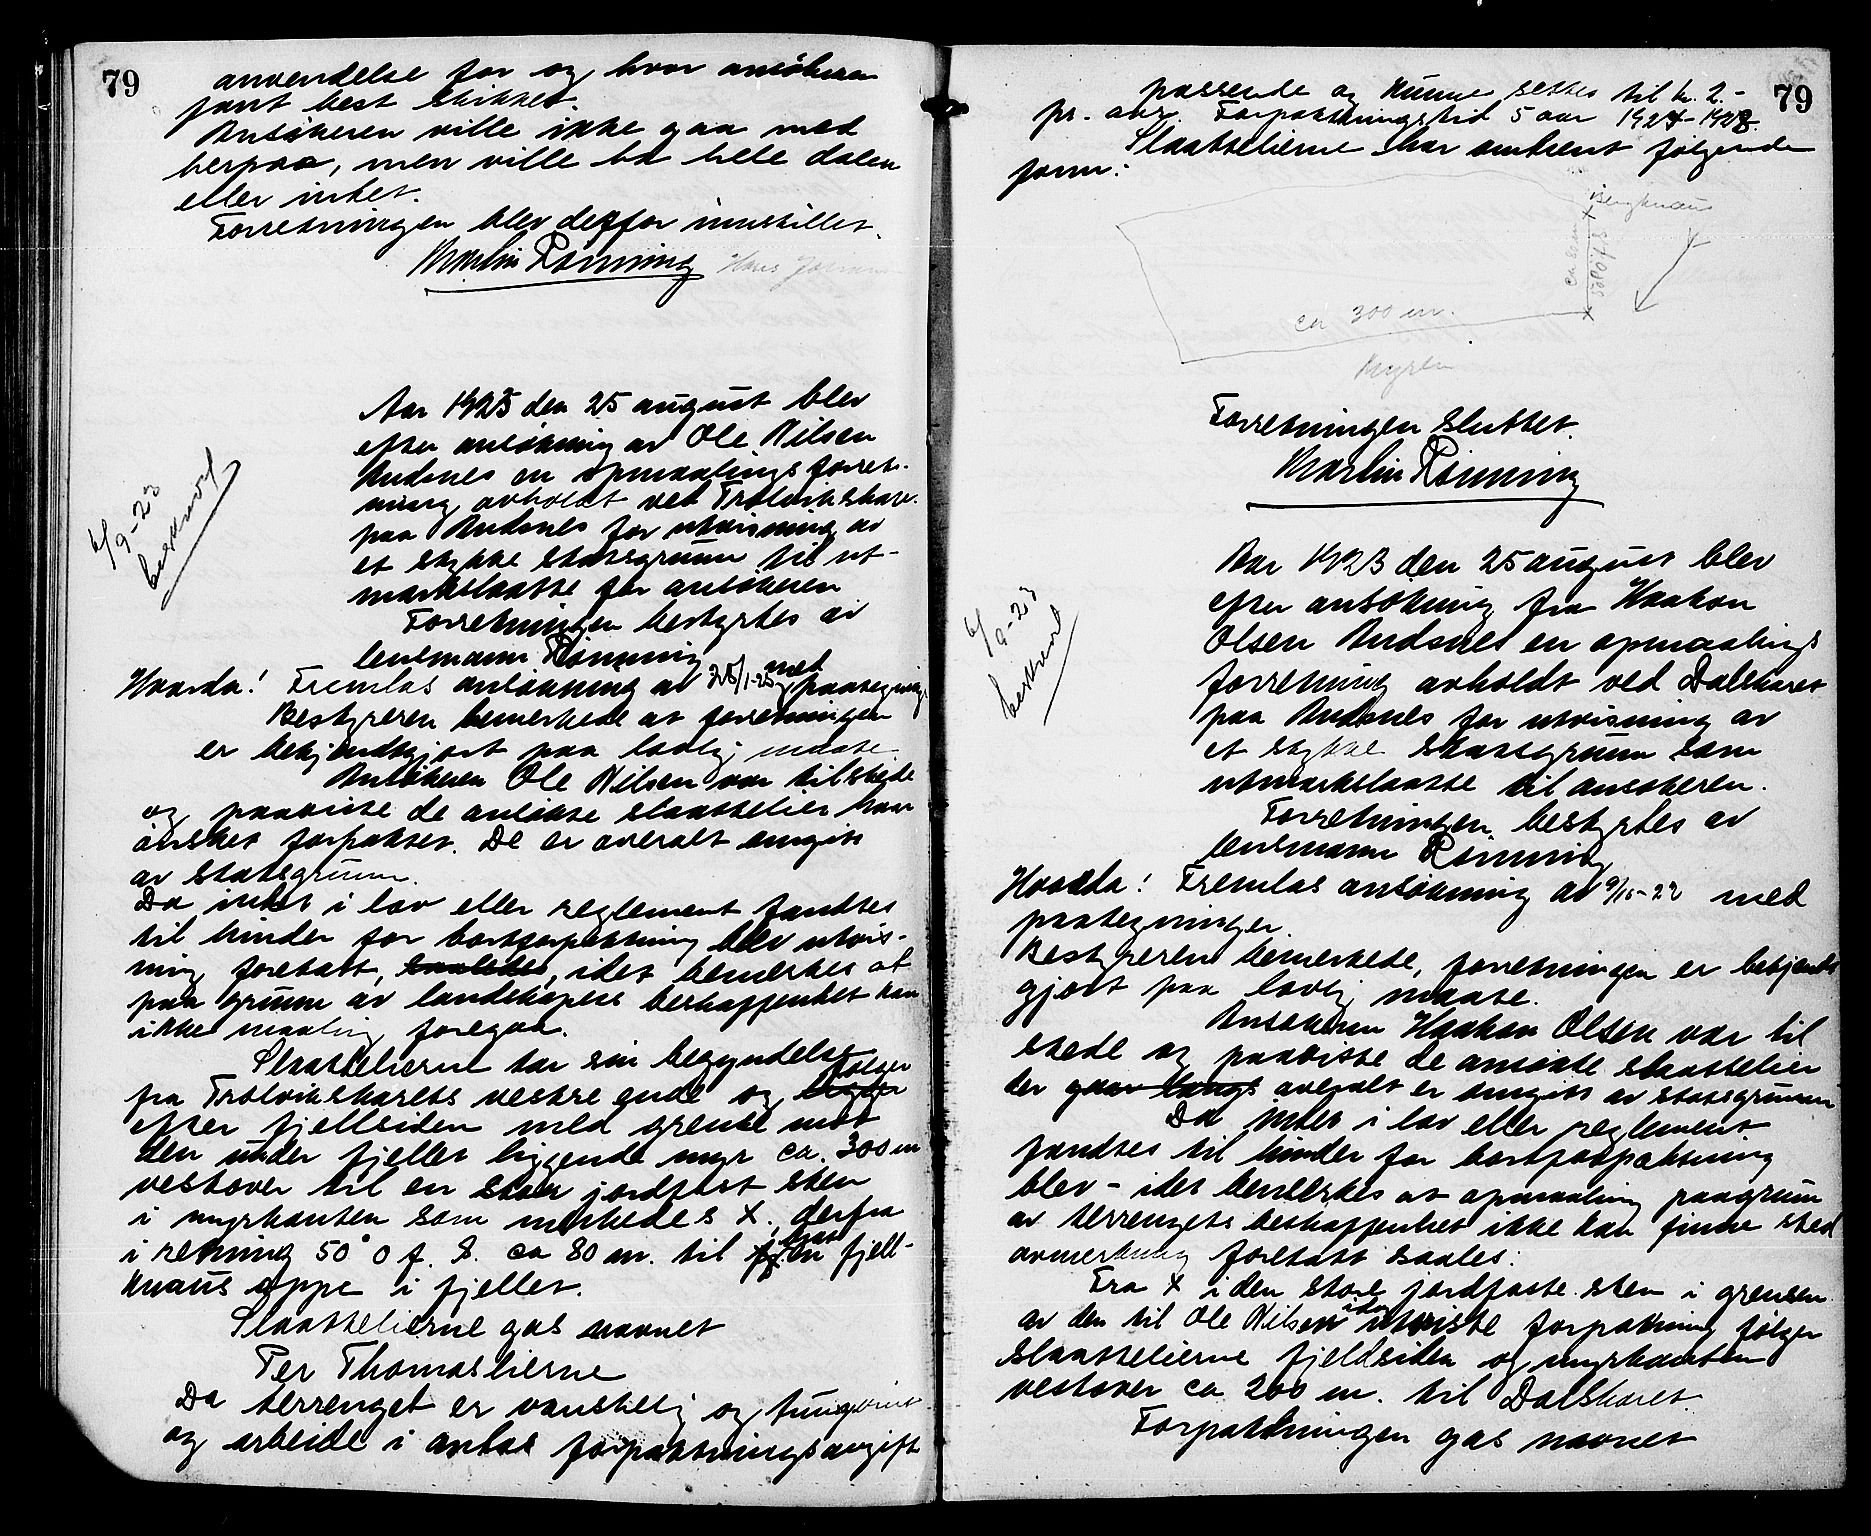 79
anvendelse for og hvor ansökeren
fant best skikket.
Ansökeren ville ikke gaa med
herpaa, men ville ha hele dalen
eller intet.
Forretningen blev derfor innstillet.
Martin Rönning Hans
Aar 1923 den 25 august blev
efter ansökning av Ole Nilsen
Andsnes en opmaalingsforret-
ning avholdt ved Trolvikskare.
paa Andsnes for utvisning av
et stykke statsgrunn til ut-
markslaatte for ansökeren
Forretningen bestyrtes av
lensmann Rönning
6/9-23
beskrevet
Hvorda! Fremlas ansökning av med paategning
Bestyreren bemerkede at forretningen
er bekjendtgjort paa lovlig maate.
Ansökeren Ole Nilsen var tilstede
og paaviste de ansökte slaattelier han
önsket forpaktet. De er overalt omgitt
av statsgrunn.
Da intet i lov eller reglement fandtes
til hinder for bortforpaktning blev utvis-
ning foretatt, saaledes, idet bemerkes at
paa grunn av landskapets beskaffenhet kan
ikke maaling foregaa.
Slaattelierne tar sin begyndelse
fra Trolvikskarets vestre ende og følger
efter fjellsiden med grense mot
den under fjellet liggende myr ca. 300 m
vestover til en stor jordfast sten
i myrkanten som merkedes X. derfra
i retning 50° O f. S. ca 80 m. til en fjell-
knaus oppe i fjellet.
Slaattelierne gas navnet
Per Thomaslierne
Da terrenget er vanskelig og tungvint
og arbeide i antas forpaktningsavgift
79
passende og kunne settes til kr. 2.-
pr. aar. Forpaktningstid 5 aar
Slaattelierne har omtrent følgende
form:
Bergknaus
ca 80 m
50° O f. S.
ca 300 m.
Myren
Forretningen sluttet.
Martin Rönning
Aar 1923 den 25 august blev
efter ansökning fra Haakon
Olsen Andsnes en opmaalings
forretning avholdt ved Dalskaret
paa Andsnes for utvisning av
et stykke statsgrunn som
utmarkslaatte til ansökeren.
Forretningen bestyrtes av
lensmann Rönning
6/9-23
beskrevet
Hvorda! Fremlas ansökning av 9/10-22 med
paategninger.
Bestyreren bemerkede, forretningen er bekjendt
gjort paa lovlig maate.
Ansökeren Haakon Olsen var til
stede og paaviste de ansökte slaattelier
der gaar langs overalt er omgitt av statsgrunn
Da intet i lov eller reglement
fandtes til hinder for bortforpaktning
blev - idet bemerkes at opmaaling paagrunn
av terrengets beskaffenhet ikke kan finne sted
avmerkning foretatt saales:
Fra X i den store jordfaste sten i grensen
av den til Ole Nilsen idag utviste forpaktning følger
slaattelierne fjeldsiden og myrkanten
vestover ca 200 m. til Dalskaret.
Forpaktningen gas navnet